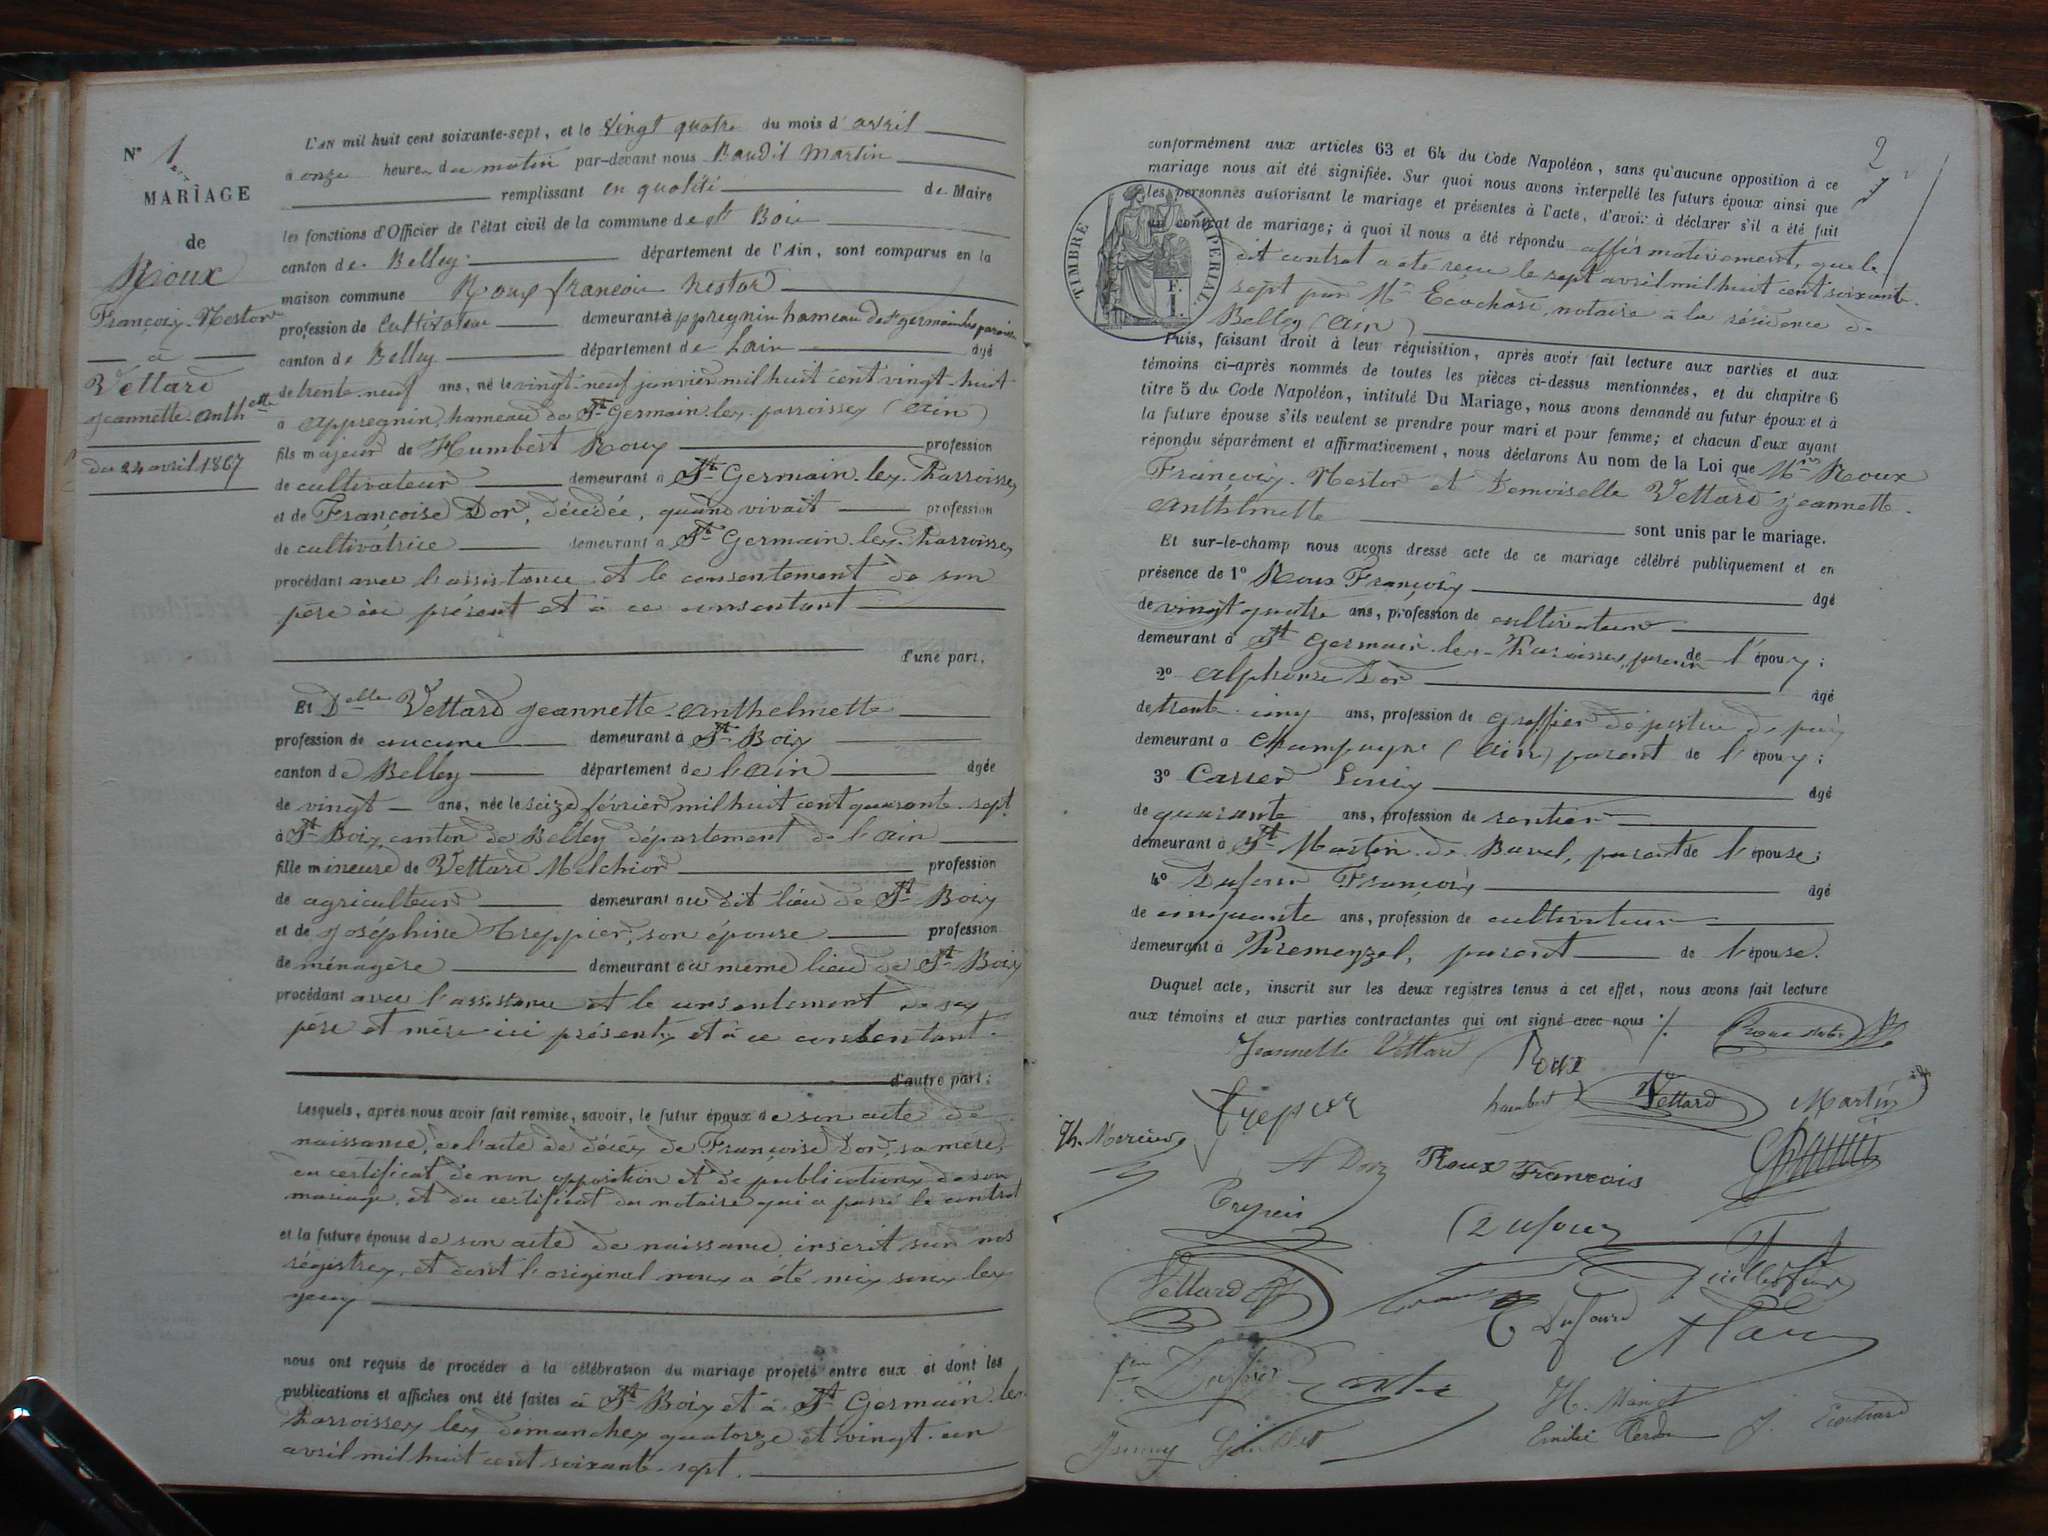 N° 1
MARIAGE
de
Roux
François-Nestor
à
Vettard
Jeannette-Anth.elle
du 24 avril 1867
L'AN mil huit cent soixante-sept, et le vingt quatre du mois d'avril
à onze heures du matin par-devant nous Baudit Martin
remplissant en qualité de Maire
les fonctions d'Officier de l'état civil de la commune de St Bois
canton de Belley département de l'Ain, sont comparus en la
maison commune Roux françois nestor
profession de cultivateur demeurant à appregnin hameau de St germain les paroisses
canton de Belley département de Lain âgé
de trente-neuf ans, né le vingt-neuf janvier mil huit cent vingt-huit
à Appregnin, hameau de St Germain-les-parroisses (Ain)
fils majeur de Humbert Roux profession
de cultivateur demeurant à St Germain-les-Parroisses
et de Françoise Dor, décédée, quand vivait profession
de cultivatrice demeurant à St Germain-les-Parroisses
procédant avec l'assistance et le consentement de son
père ici présent et à ce consentant
d'une part,
Et Delle Vettard Jeannette-Anthelmette
profession de aucune demeurant à St Bois
canton de Belley département de l'Ain âgée
de vingt ans, née le seize février mil huit cent quarante-sept
à St Bois, canton de Belley département de l'Ain
fille mineure de Vettard Melchior profession
de agriculteur demeurant au dit lieu de St Bois
et de Joséphine Treppier, son épouse profession
de ménagère demeurant au même lieu de St Bois
procédant avec l'assistance et le consentement de ses
père et mère ici présents et à ce consentant.
d'autre part;
Lesquels, après nous avoir fait remise, savoir, le futur époux de son acte de
naissance, de l'acte de décès de Françoise Dor, sa mère,
du certificat de non opposition et de publications de son
mariage, et du certificat du notaire qui a passé le contrat
et la future épouse de son acte de naissance inscrit sur nos
régistres, et dont l'original nous a été mis sous les
yeux
nous ont requis de procéder à la célébration du mariage projeté entre eux et dont les
publications et affiches ont été faites à St Bois et à St Germain-les-
Parroisses les dimanches quatorze et vingt-un
avril mil huit cent soixante-sept.
2
TIMBRE IMPERIAL
conformément aux articles 63 et 64 du Code Napoléon, sans qu'aucune opposition à ce
mariage nous ait été signifiée. Sur quoi nous avons interpellé les futurs époux ainsi que
les personnes autorisant le mariage et présentes à l'acte, d'avoir à déclarer s'il a été fait
un contrat de mariage; à quoi il nous a été répondu affirmativement, que le
dit contrat a été reçu le sept avril mil huit cent soixante-
sept par Me Ecochard, notaire à la résidence de
Belley (Ain)
Puis, faisant droit à leur réquisition, après avoir fait lecture aux parties et aux
témoins ci-après nommés de toutes les pièces ci-dessus mentionnées, et du chapitre 6
titre 5 du Code Napoléon, intitulé Du Mariage, nous avons demandé au futur époux et à
la future épouse s'ils veulent se prendre pour mari et pour femme; et chacun d'eux ayant
répondu séparément et affirmativement, nous déclarons Au nom de la Loi que Mr Roux
François-Nestor et Demoiselle Vettard Jeannette-
Anthelmette sont unis par le mariage.
Et sur-le-champ nous avons dressé acte de ce mariage célébré publiquement et en
présence de 1° Roux François âgé
de vingt quatre ans, profession de cultivateur
demeurant à St Germain-les-Paroisses, parent de l'époux;
2° Alphonse Dor âgé
de trente-cinq ans, profession de greffier de justice de paix
demeurant à Champagne (Ain) parent de l'époux;
3° Carrer Louis âgé
de quarante ans, profession de rentier
demeurant à St Martin-de-Bavel, parent de l'épouse;
4° Dufour François âgé
de cinquante ans, profession de cultivateur
demeurant à Premeyzel, parent de l'épouse.
Duquel acte, inscrit sur les deux registres tenus à cet effet, nous avons fait lecture
aux témoins et aux parties contractantes qui ont signé avec nous
Jeannette Vettard Roux
Trepier humbert Vettard Martin
Th. Mercier
A Dor Roux François
Dufour
Vettard
Dufour
H. Minet
Jenny Guillot Emilie J. Ecochard